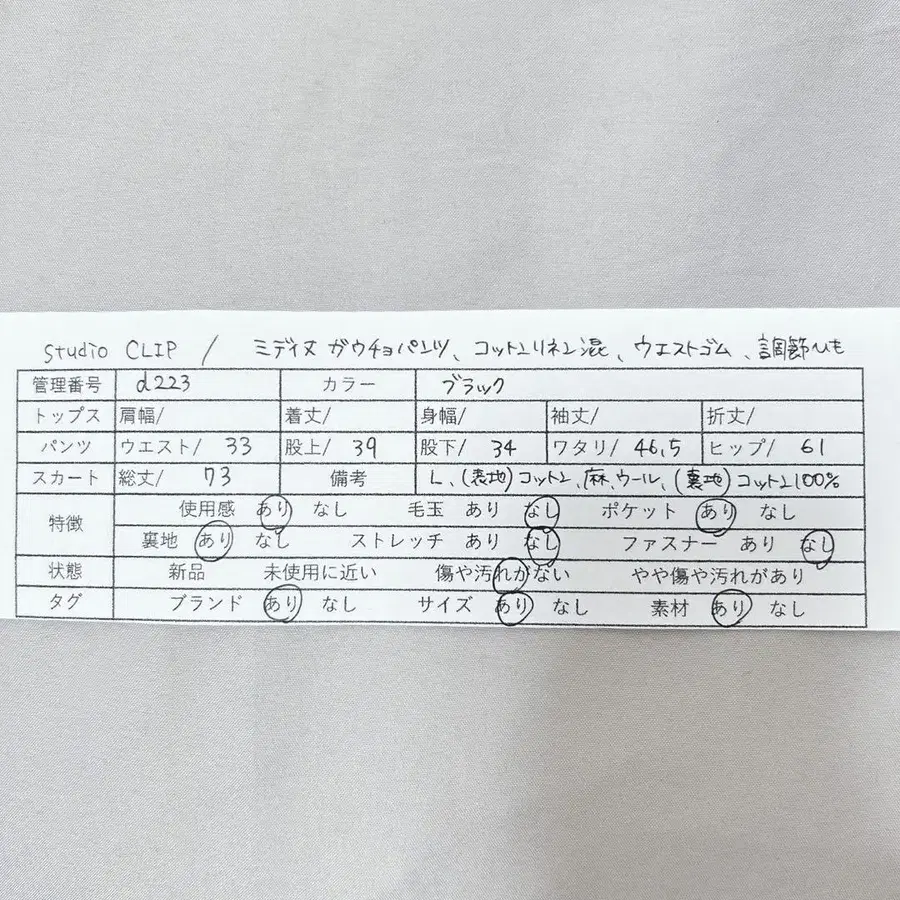 studio CLIP / ミディヌ ガウチョパンツ、コットンリネン混、ウエストゴム、調節ひも
管理番号 d223 カラー ブラック
トップス 肩幅/ 着丈/ 身幅/ 袖丈/ 折丈/
パンツ ウエスト/ 33 股上/ 39 股下/ 34 ワタリ/ 46,5 ヒップ/ 61
スカート 総丈/ 73 備考 L、(表地)コットン、麻、ウール、(裏地)コットン100%
特徴 使用感 あり なし 毛玉 あり なし ポケット あり なし
裏地 あり なし ストレッチ あり なし ファスナー あり なし
状態 新品 未使用に近い 傷や汚れがない やや傷や汚れがあり
タグ ブランド あり なし サイズ あり なし 素材 あり なし